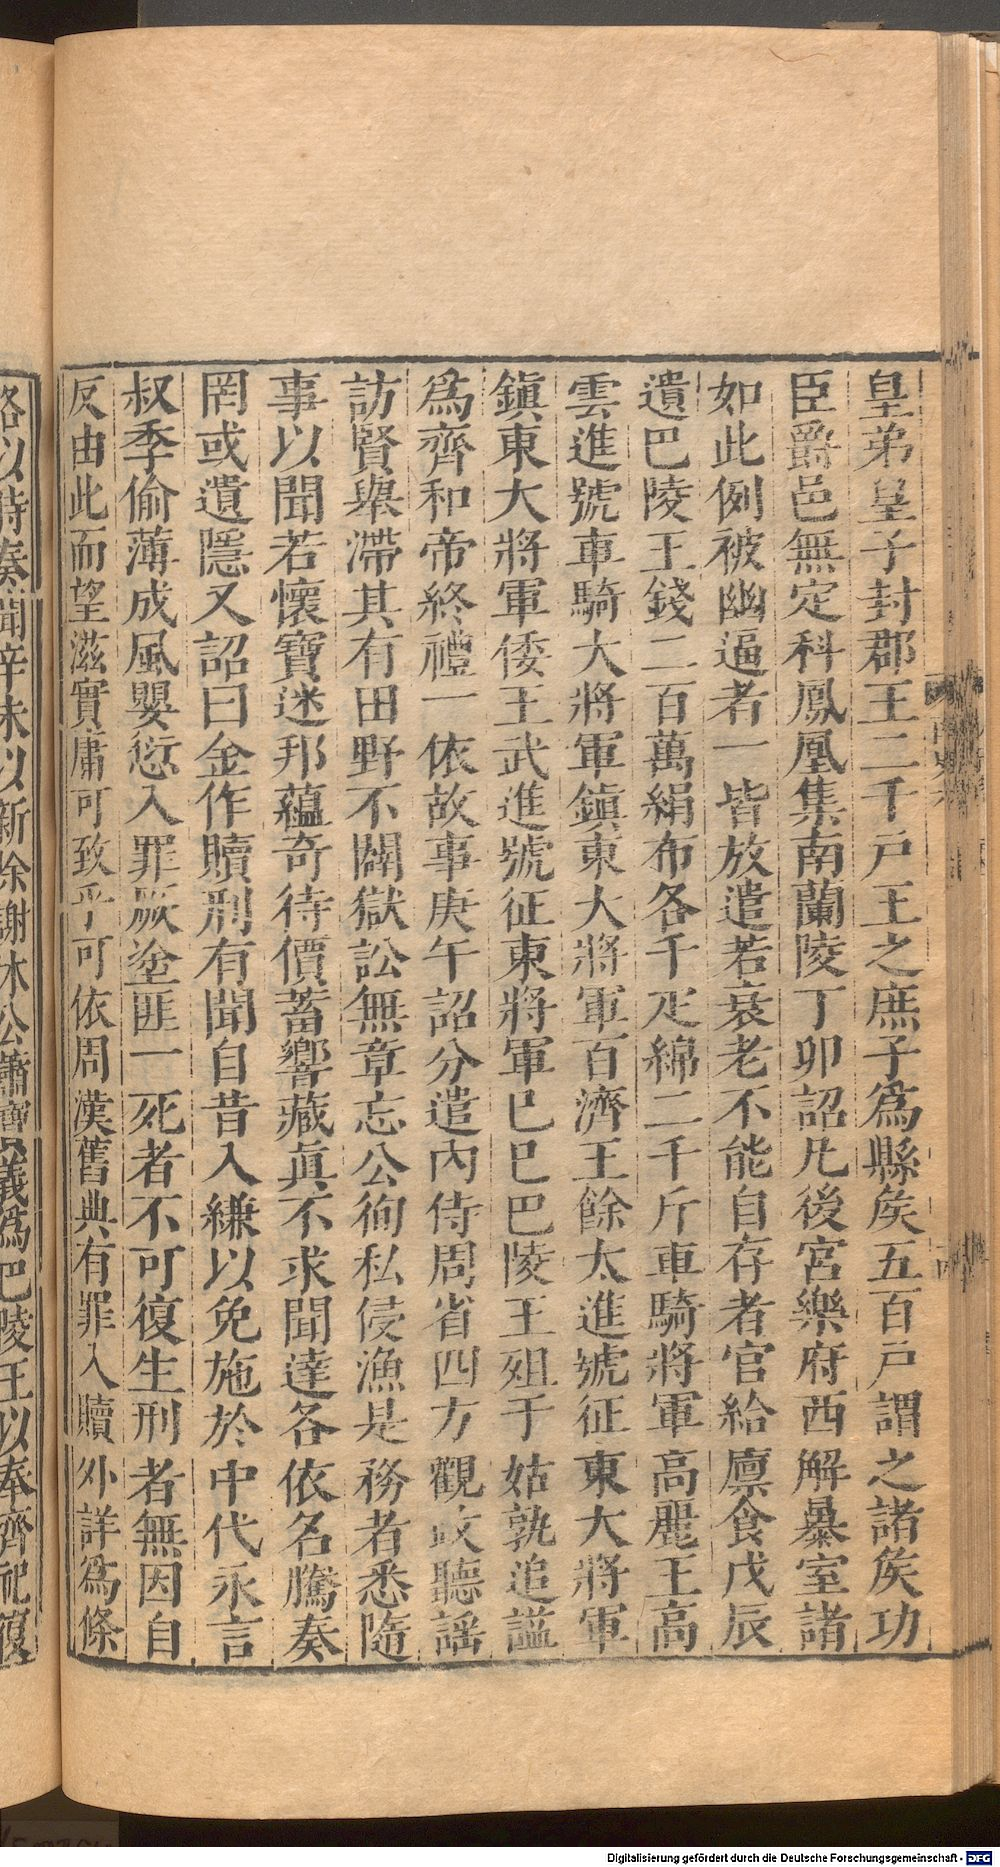 皇弟皇子封郡王二千戶王之庶子爲縣矦五百戶謂之諸矦功
臣爵邑無定科鳳凰集南蘭陵丁卯詔凡後宮樂府西解暴室諸
如此例被幽逼者一皆放遣若衰老不能自存者官給廩食戊辰
遺巴陵王錢二百萬絹布各千疋綿二千斤車騎將軍高麗王高
雲進號車騎大將軍鎭東大將軍百濟王餘太進號征東大將軍
鎭東大將軍倭王武進號征東將軍巳巳巴陵王殂于姑孰追謚
爲齊和帝終禮一依故事庚午詔分遣內侍周省四方觀政聽謡
訪賢舉滯其有田野不闢獄訟無章忘公徇私侵漁是務者悉隨
事以聞若懷寶迷邦蘊奇待價蓄響藏眞不求聞達各依名騰奏
罔或遺隱又詔曰金作贖刑有聞自昔入縑以免施於中代永言
叔季偷薄成風嬰愆入罪厥塗匪一死者不可復生刑者無因自
反由此而望滋實庸可致乎可依周漢舊典有罪入贖外詳爲條
格以時奏聞辛未以新除謝沐公蕭寶義爲巴陵王以奉齊祀復
Digitalisierung gefördert durch die Deutsche Forschungsgemeinschaft - DFG